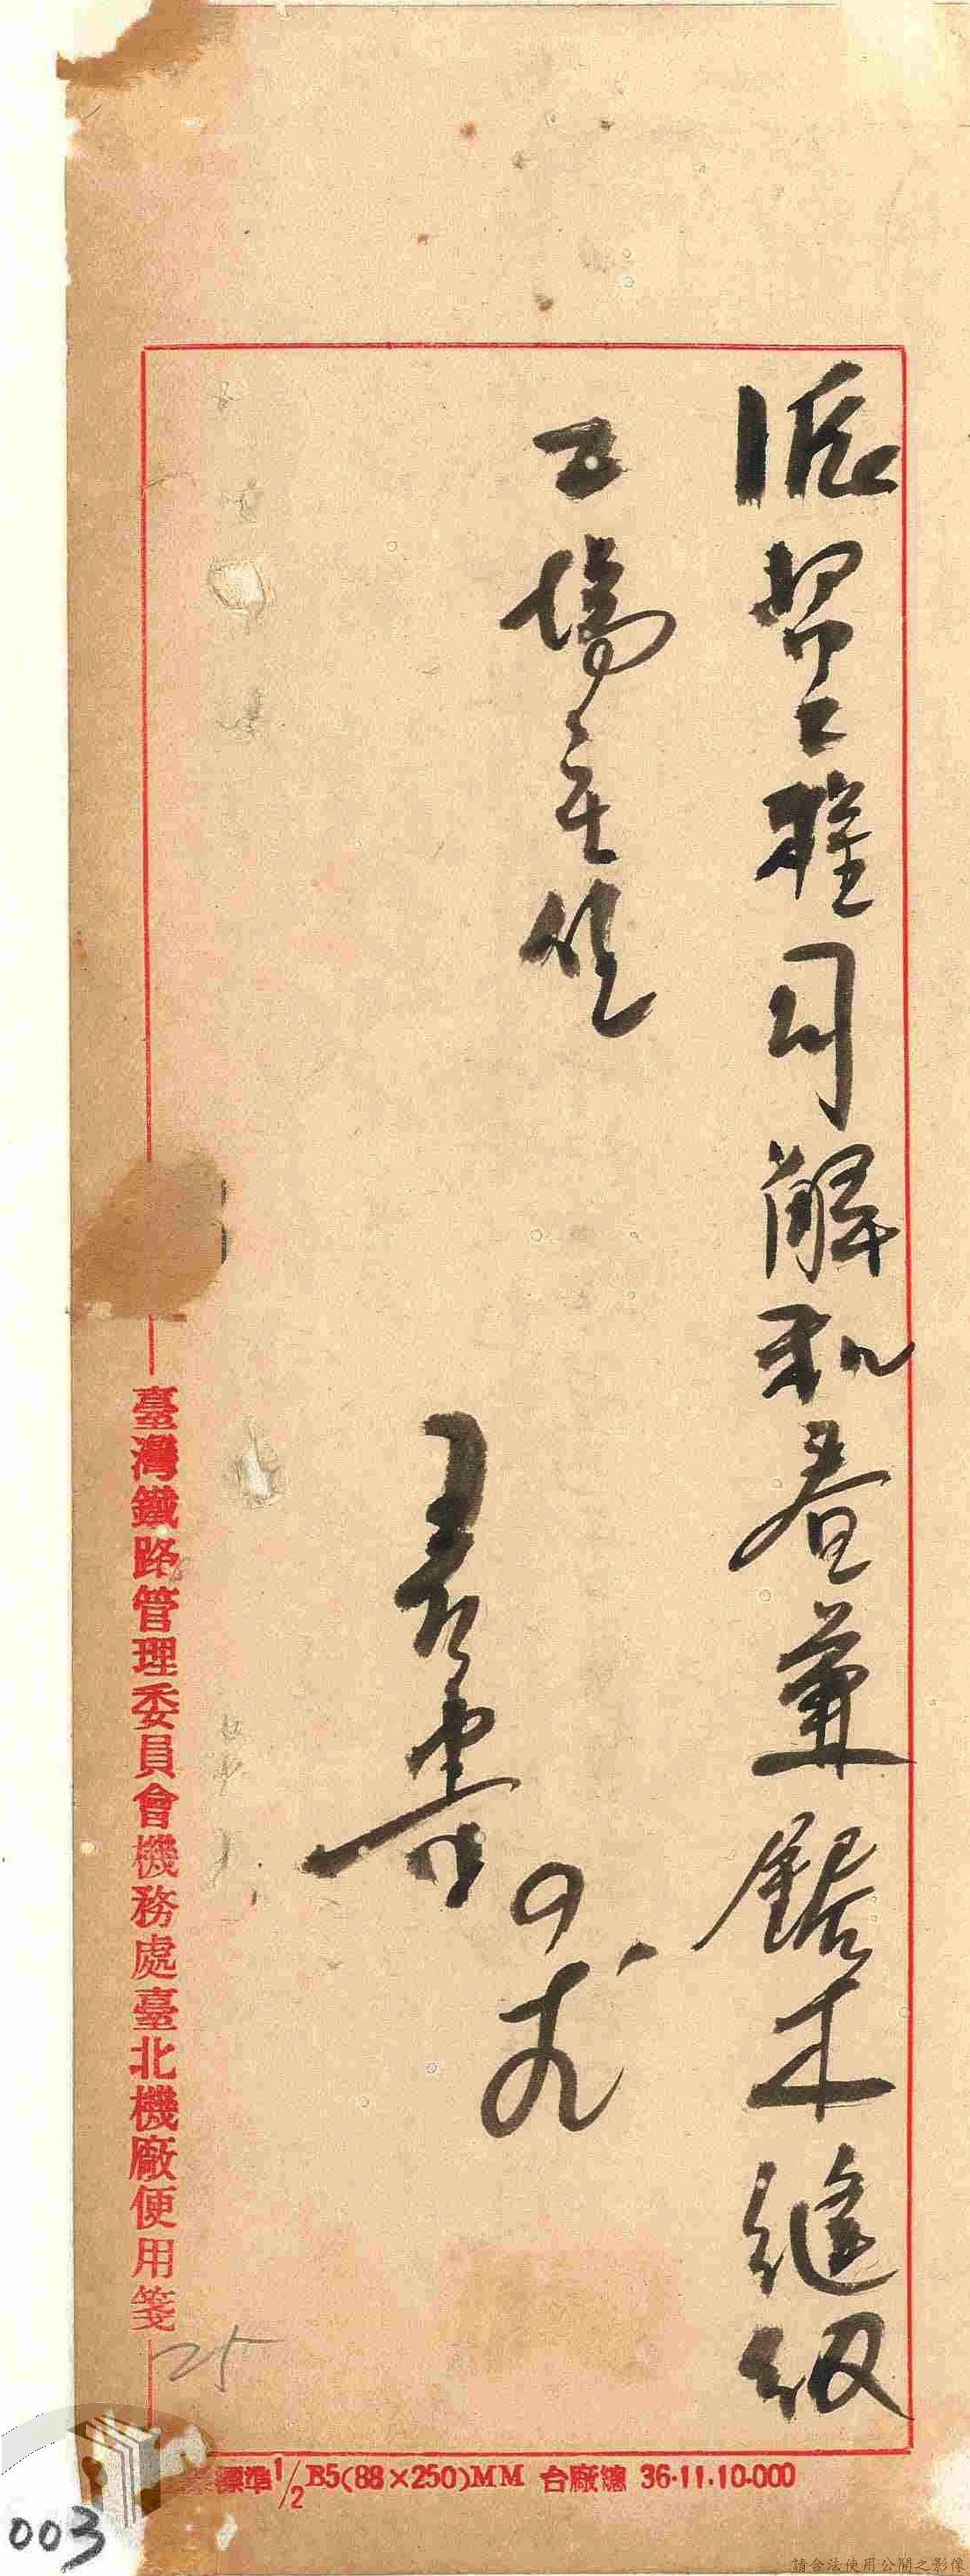 派帮工程司解和春兼鋸木縫紉
工場主任
臺灣鐵路管理委員會機務處臺北機廠便用箋
25
標準1/2 B5(88×250)MM 台廠總 36·11.10.000
003
請合法使用公開之影像